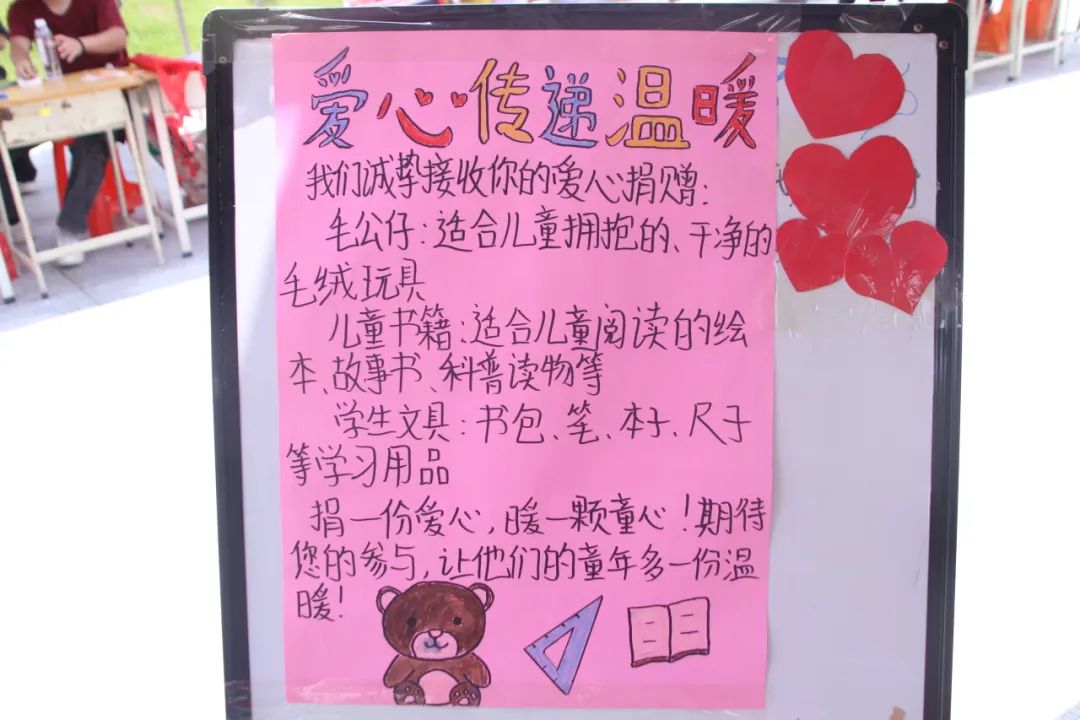 爱心传递温暖
我们诚挚接收你的爱心捐赠:
毛公仔:适合儿童拥抱的、干净的
毛绒玩具
儿童书籍:适合儿童阅读的绘
本、故事书、科普读物等
学生文具:书包、笔、本子、尺子
等学习用品
捐一份爱心,暖一颗童心!期待
您的参与,让他们的童年多一份温
暖!